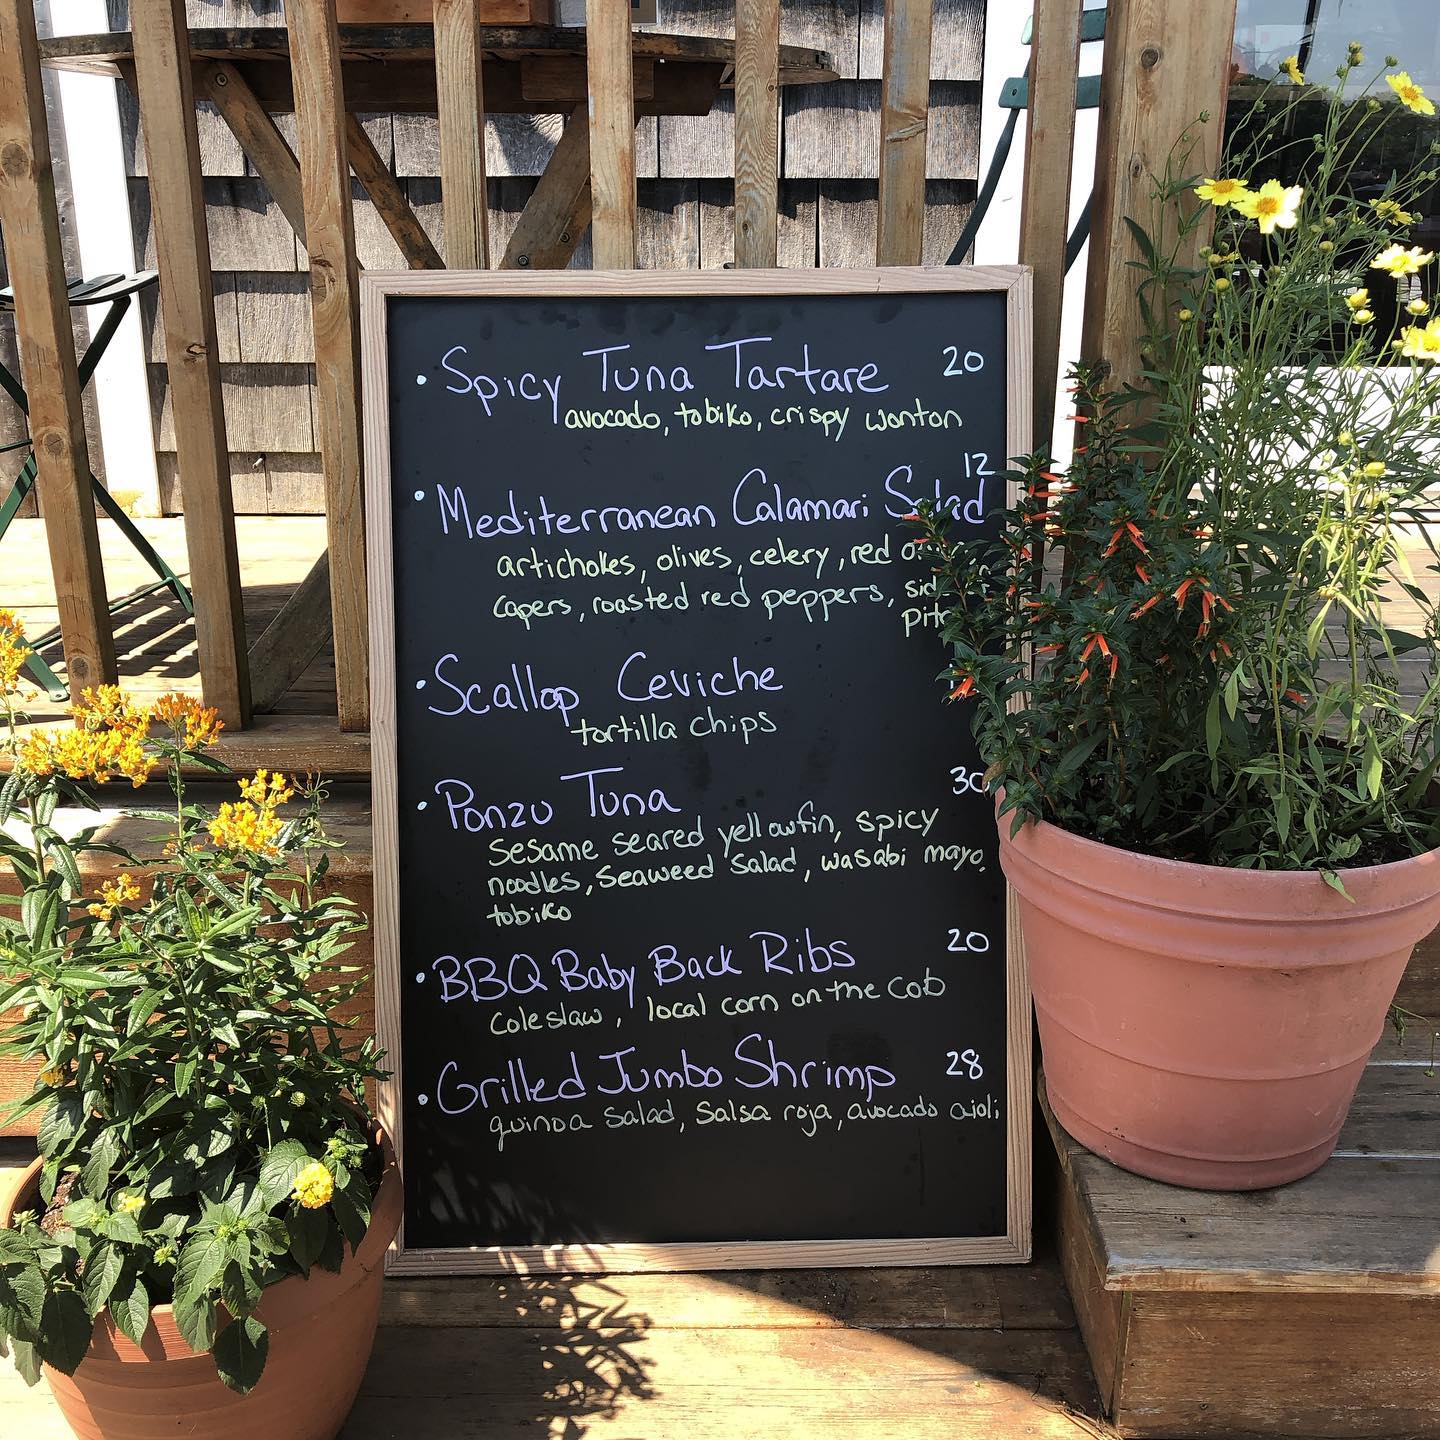 • Spicy Tuna Tartare 20
avocado, tobiko, crispy wonton
12
• Mediterranean Calamari Salad
artichokes, olives, celery, red
capers, roasted red peppers,
• Scallop Ceviche
tortilla chips
• Ponzu Tuna 30
sesame seared yellowfin, spicy
noodles, seaweed salad, wasabi mayo,
tobiko
• BBQ Baby Back Ribs 20
coleslaw, local corn on the cob
• Grilled Jumbo Shrimp 28
quinoa salad, salsa roja, avocado aioli